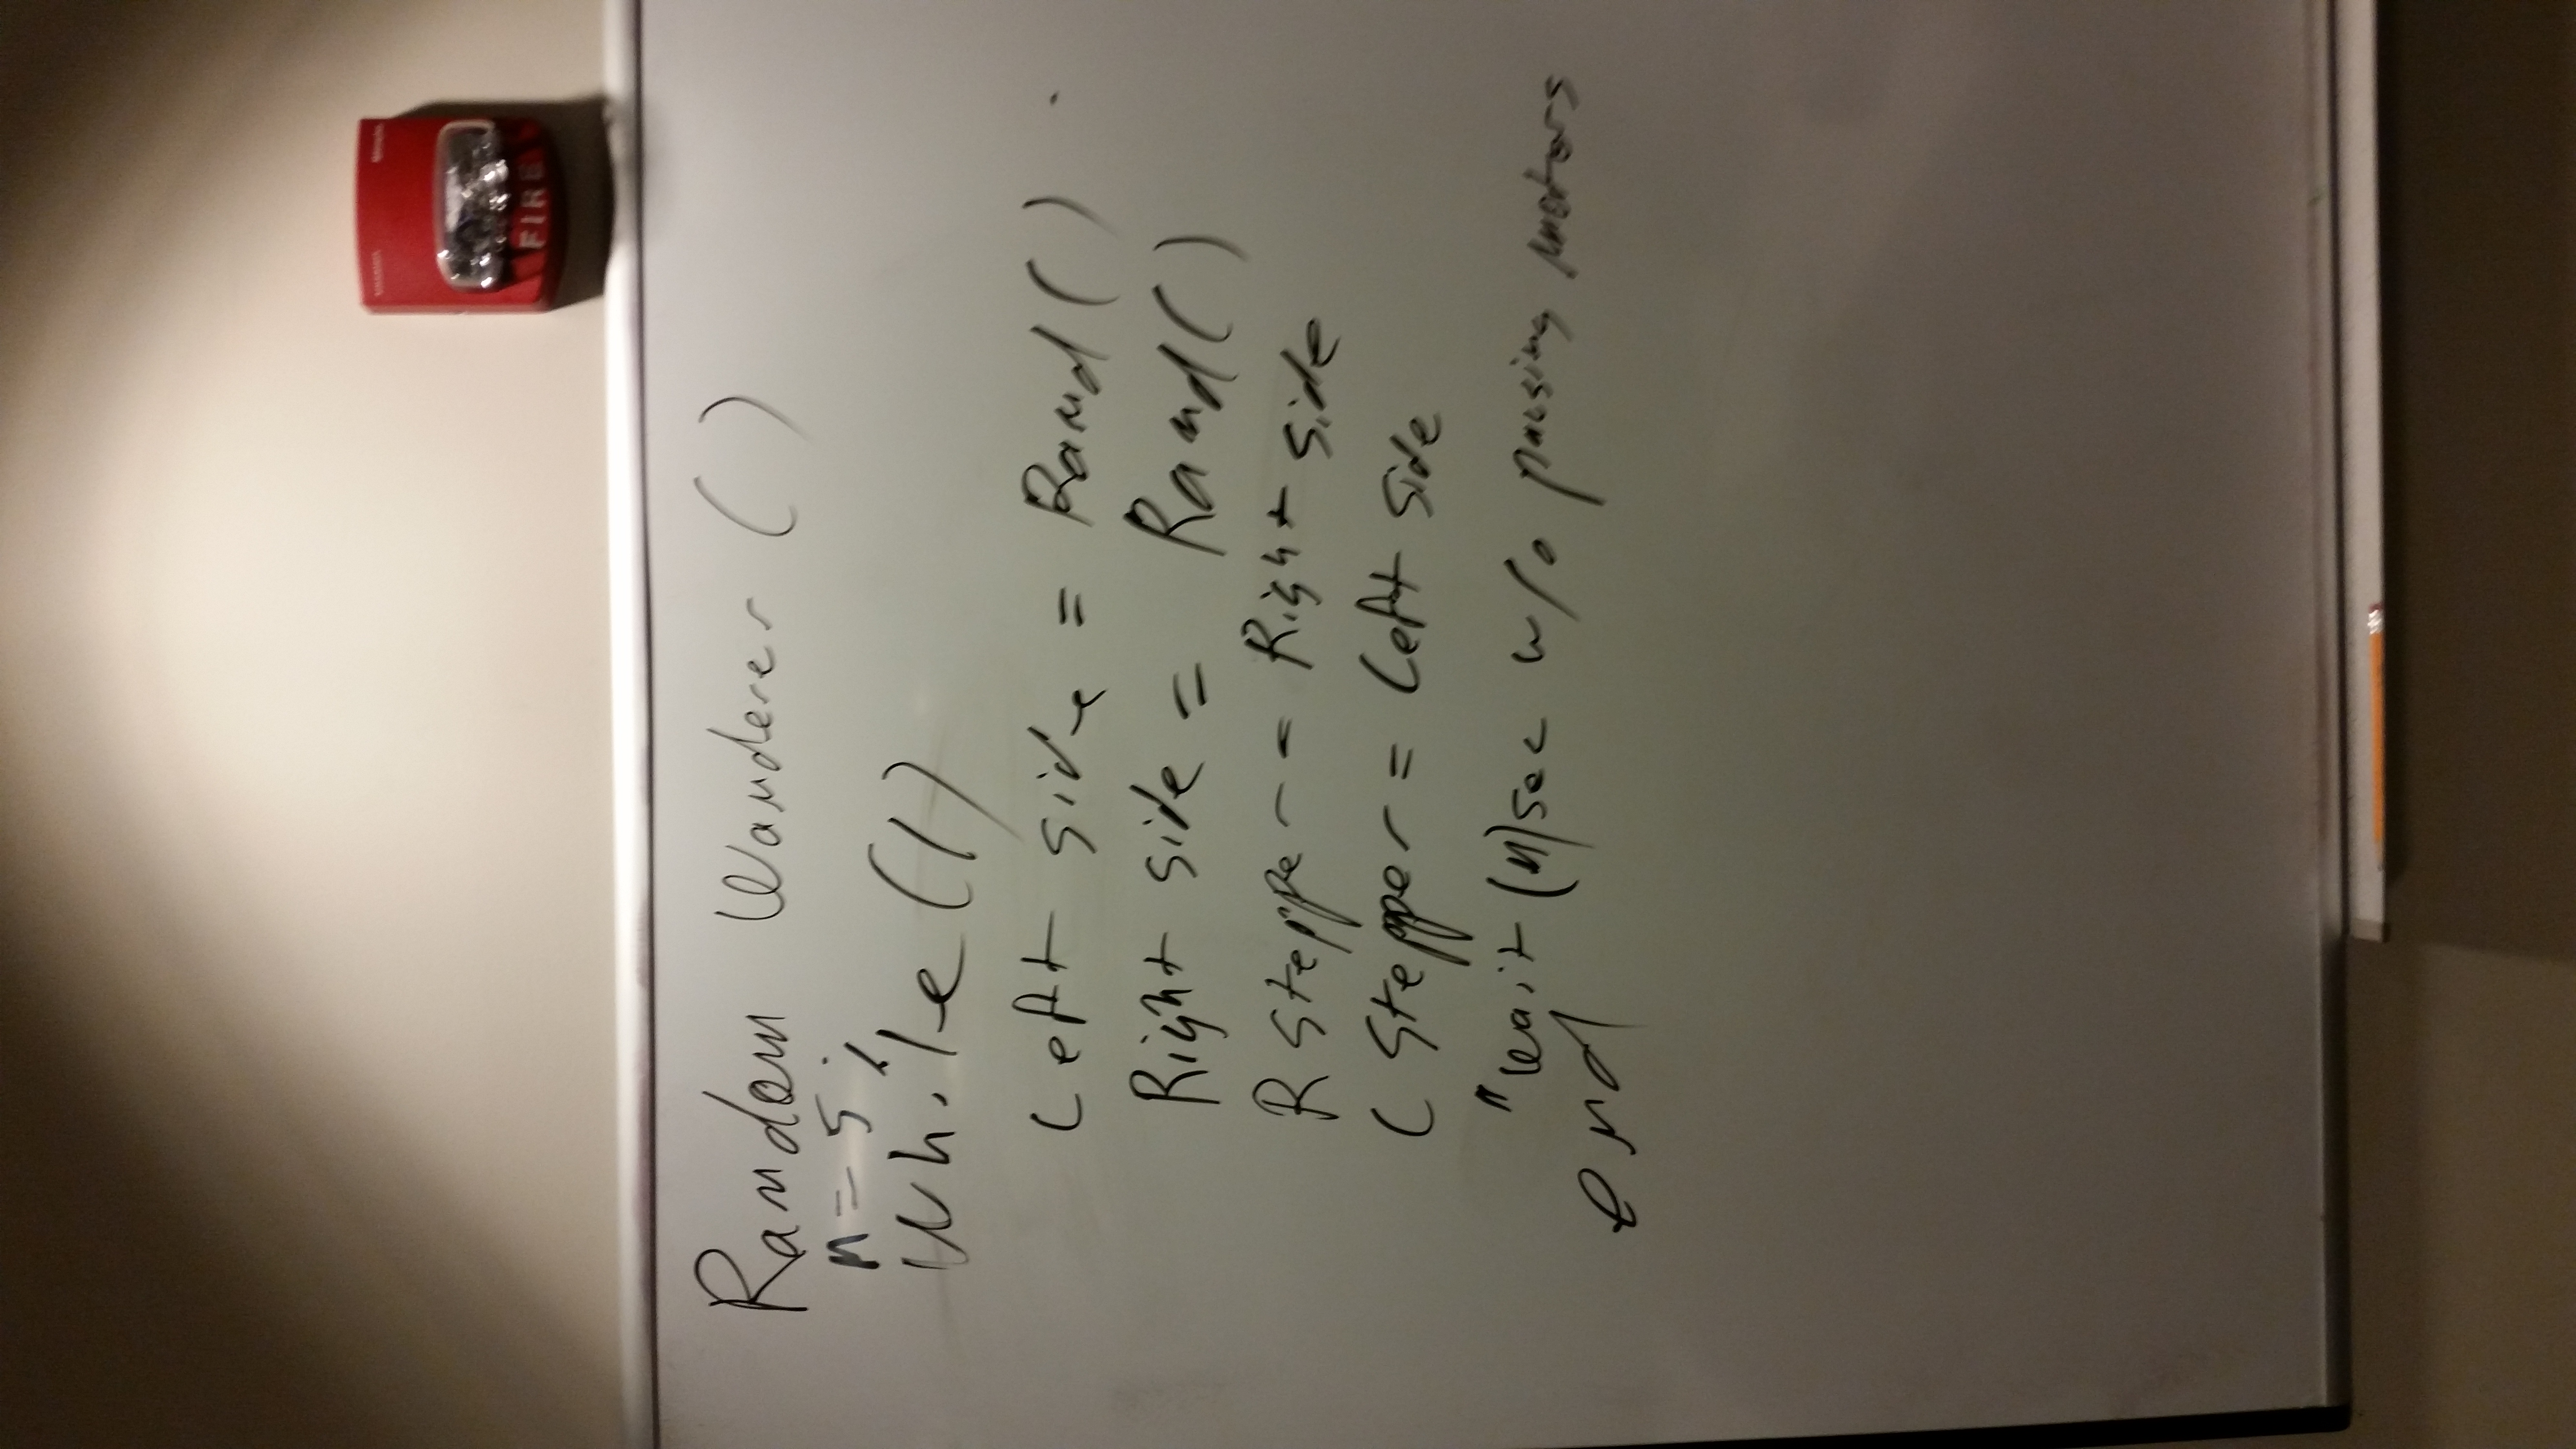 FIRE
Random Wanderer ()
n = 5;
While (1)
Left side = Rand()
Right side = Rand()
R stepper = Right side
L stepper = Left side
"wait (n) sec w/o pausing motors
end